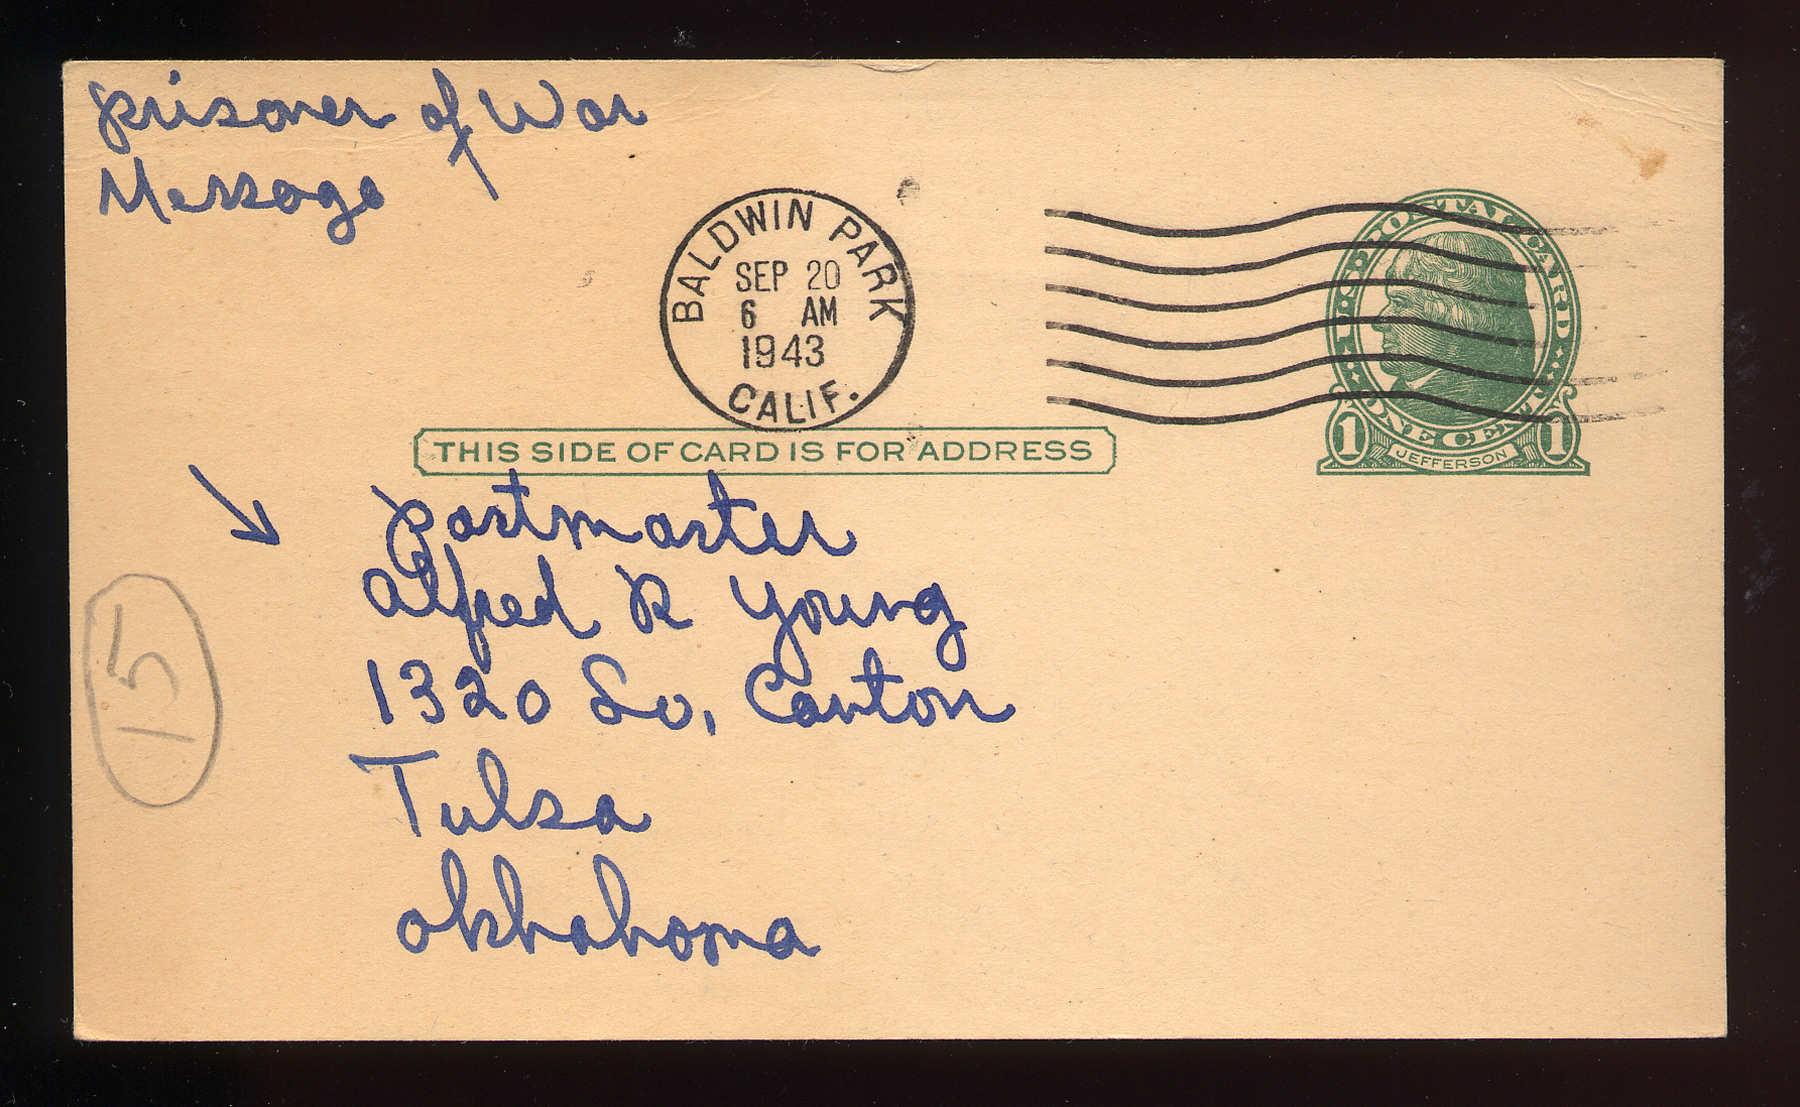 Prisoner of War
Message
BALDWIN PARK
SEP 20
6 AM
1943
CALIF.
U·S·POSTAL CARD
ONE CENT
1 JEFFERSON 1
THIS SIDE OF CARD IS FOR ADDRESS
Postmaster
Alfred R Young
1320 So. Canton
Tulsa
Oklahoma
15